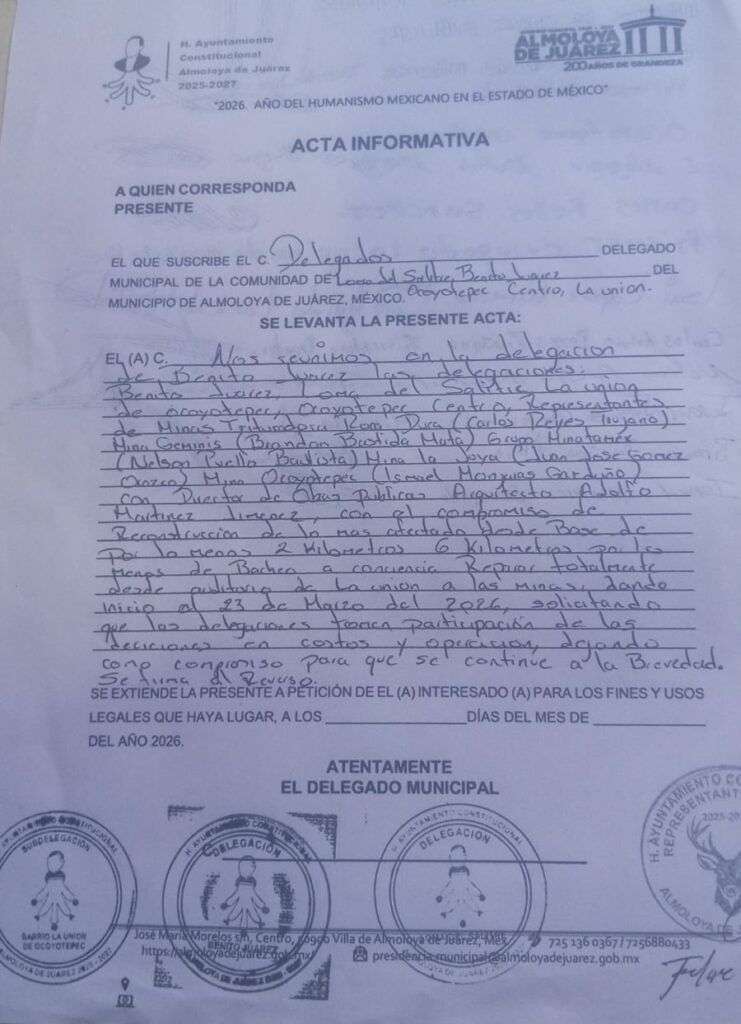 H. Ayuntamiento
Constitucional
Almoloya de Juárez
2025-2027
ALMOLOYA
DE JUÁREZ
200 AÑOS DE GRANDEZA
"2026. AÑO DEL HUMANISMO MEXICANO EN EL ESTADO DE MÉXICO"
ACTA INFORMATIVA
A QUIEN CORRESPONDA
PRESENTE
EL QUE SUSCRIBE EL C. Delegados DELEGADO
MUNICIPAL DE LA COMUNIDAD DE Loma del Salitre, Benito Juarez DEL
MUNICIPIO DE ALMOLOYA DE JUÁREZ, MÉXICO. Ocoyotepec Centro, La union.
SE LEVANTA LA PRESENTE ACTA:
EL (A) C. Nos reunimos en la delegacion
de Benito Juarez las delegaciones:
Benito Juarez, Loma del Salitre La union
de ocoyotepec, Ocoyotepec Centro, Representantes
de Minas Trituradora Rom Dica (Carlos Reyes Trujano)
Mina Geminis (Brandon Bastida Mata) Grupo Minatamex
(Nelson Bautista) Mina la Joya (Juan Jose Gomez
Orozco) Mina Ocoyotepec (Ismael Garduño)
con Director de Obras Publicas Arquitecto Adolfo
Martinez Jimenez, con el compromiso de
Reconstruccion de lo mas afectado desde Base de
Por lo menos 2 Kilometros 6 Kilometros por lo
menos de Bacheo a conciencia Reparar totalmente
desde auditorio de La union a las minas, dando
inicio el 23 de Marzo del 2026, solicitando
que las delegaciones tomen participación de las
deciciones en costos y operacion, dejando
como compromiso para que se continue a la Brevedad.
Se firma al Reverso.
SE EXTIENDE LA PRESENTE A PETICIÓN DE EL (A) INTERESADO (A) PARA LOS FINES Y USOS
LEGALES QUE HAYA LUGAR, A LOS DÍAS DEL MES DE
DEL AÑO 2026.
ATENTAMENTE
EL DELEGADO MUNICIPAL
SUBDELEGACIÓN
BARRIO LA UNION
DE OCOYOTEPEC
H. AYUNTAMIENTO CONSTITUCIONAL
DELEGACIÓN
BENITO JUAREZ
ALMOLOYA DE JUÁREZ
H. AYUNTAMIENTO CONSTITUCIONAL
DELEGACIÓN
H. AYUNTAMIENTO CO
REPRESENTANT
2025-20
ALMOLOYA DE
José María Morelos s/n, Centro, Villa de Almoloya de Juárez, Méx.
725 136 0367 / 7256880433
https://almoloyadejuarez.gob.mx
presidencia.municipal@almoloyadejuarez.gob.mx
Felipe